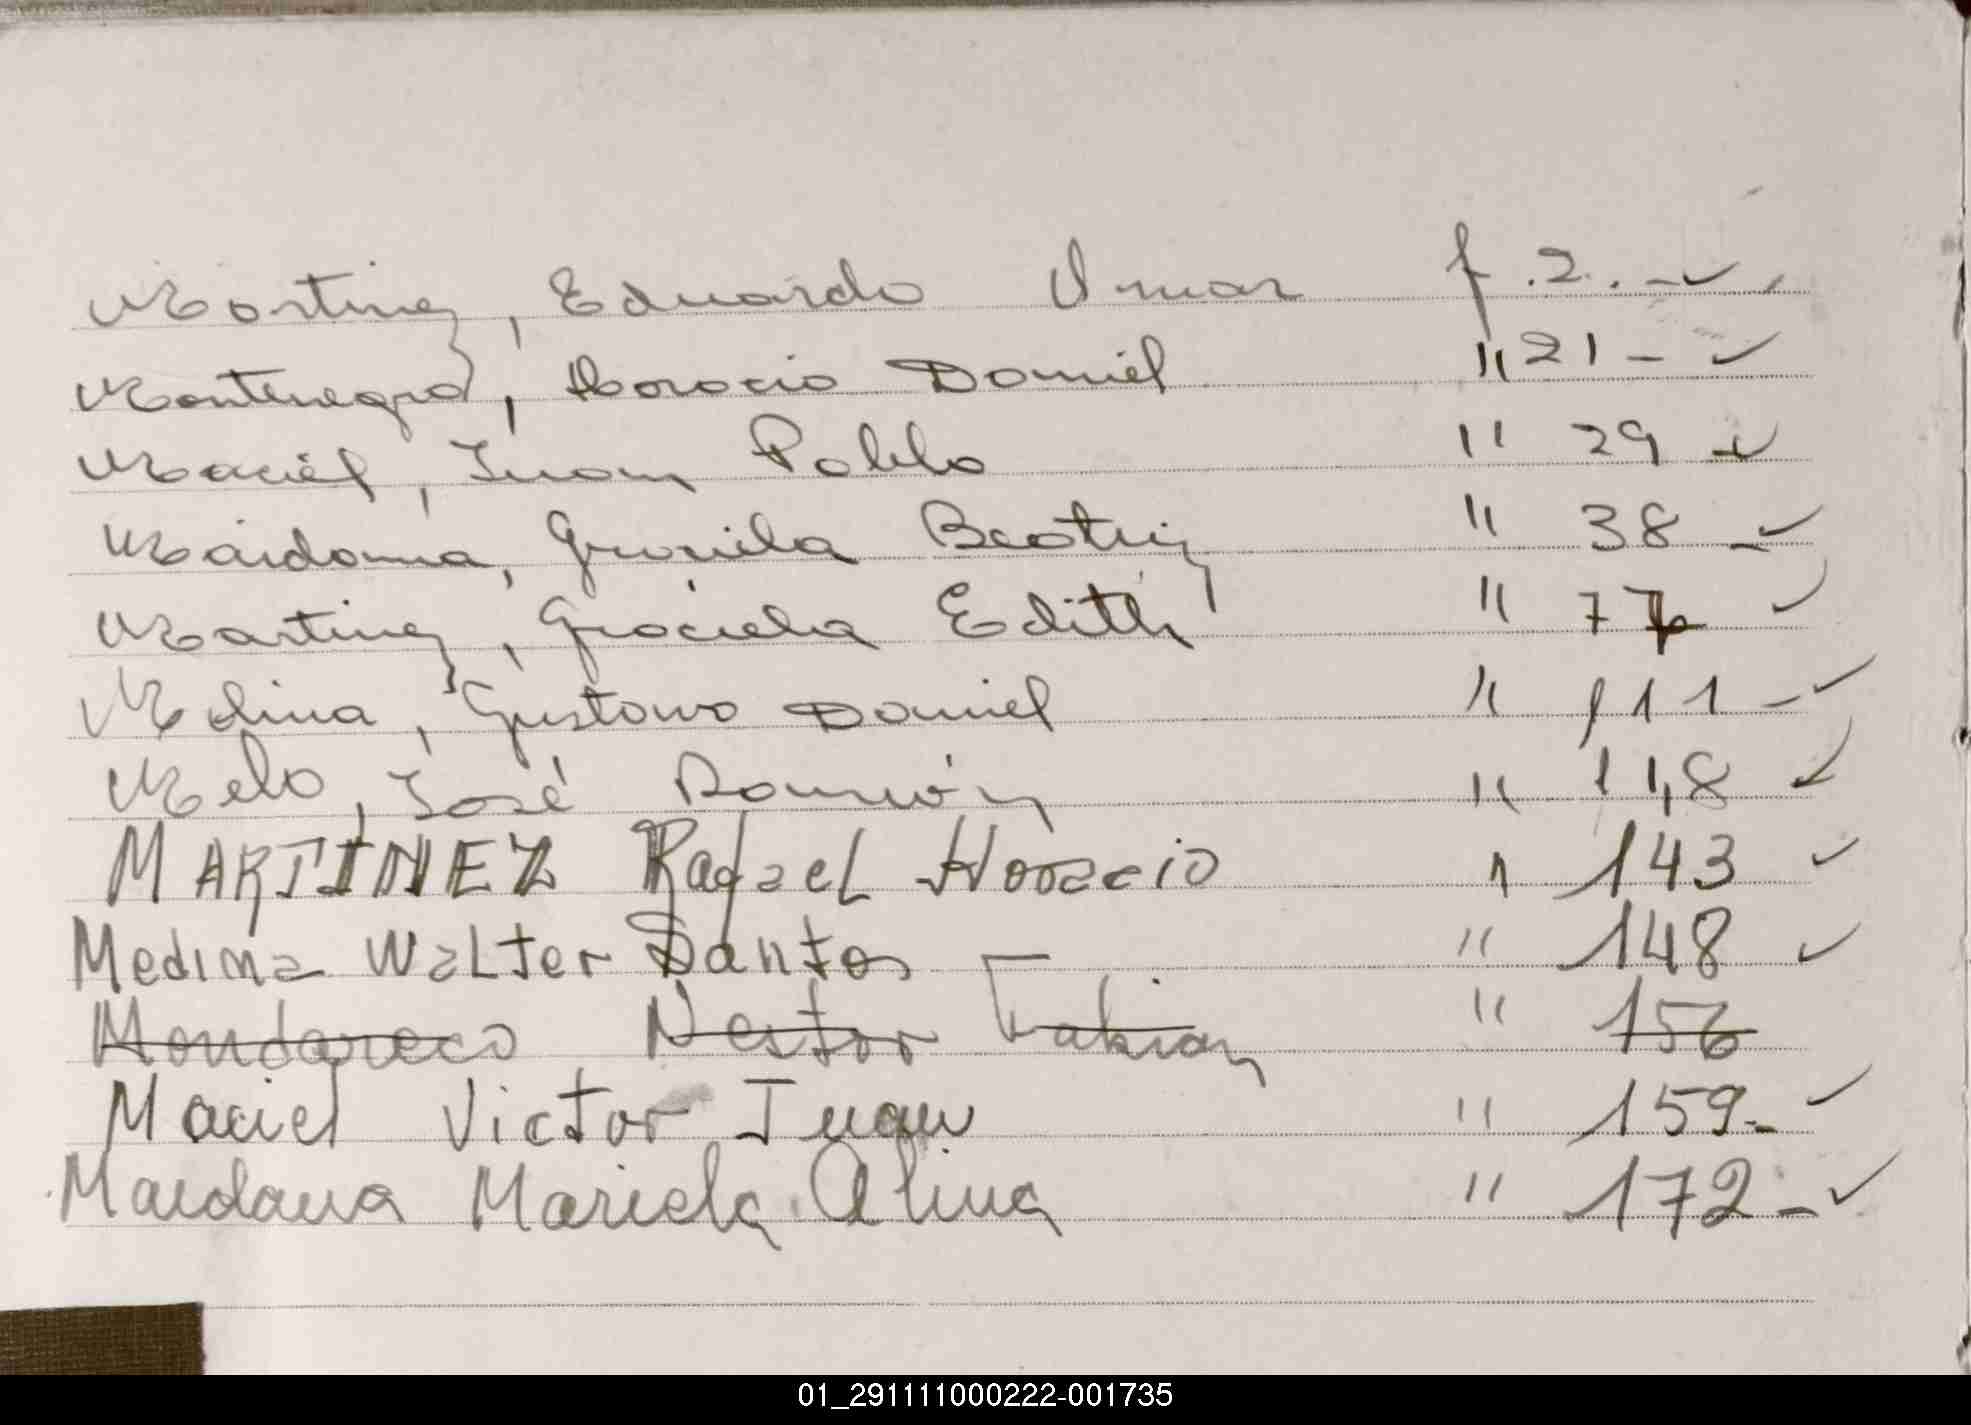 Martinez, Eduardo Omar f. 2. - ✓
Montenegro, Horacio Daniel " 21 - ✓
Maciel, Juan Pablo " 29 - ✓
Maidana, Graciela Beatriz " 38 - ✓
Martinez, Graciela Edith " 77 ✓
Molina, Gustavo Daniel " 111 - ✓
Melo, José Ramón " 118 ✓
MARTINEZ Rafael Horacio " 143 ✓
Medina Walter Santos - " 148 ✓
Mondareco Nestor Fabian " 156
Maciel Victor Juan " 159 - ✓
Maidana Mariela Alina " 172 - ✓
01_291111000222-001735